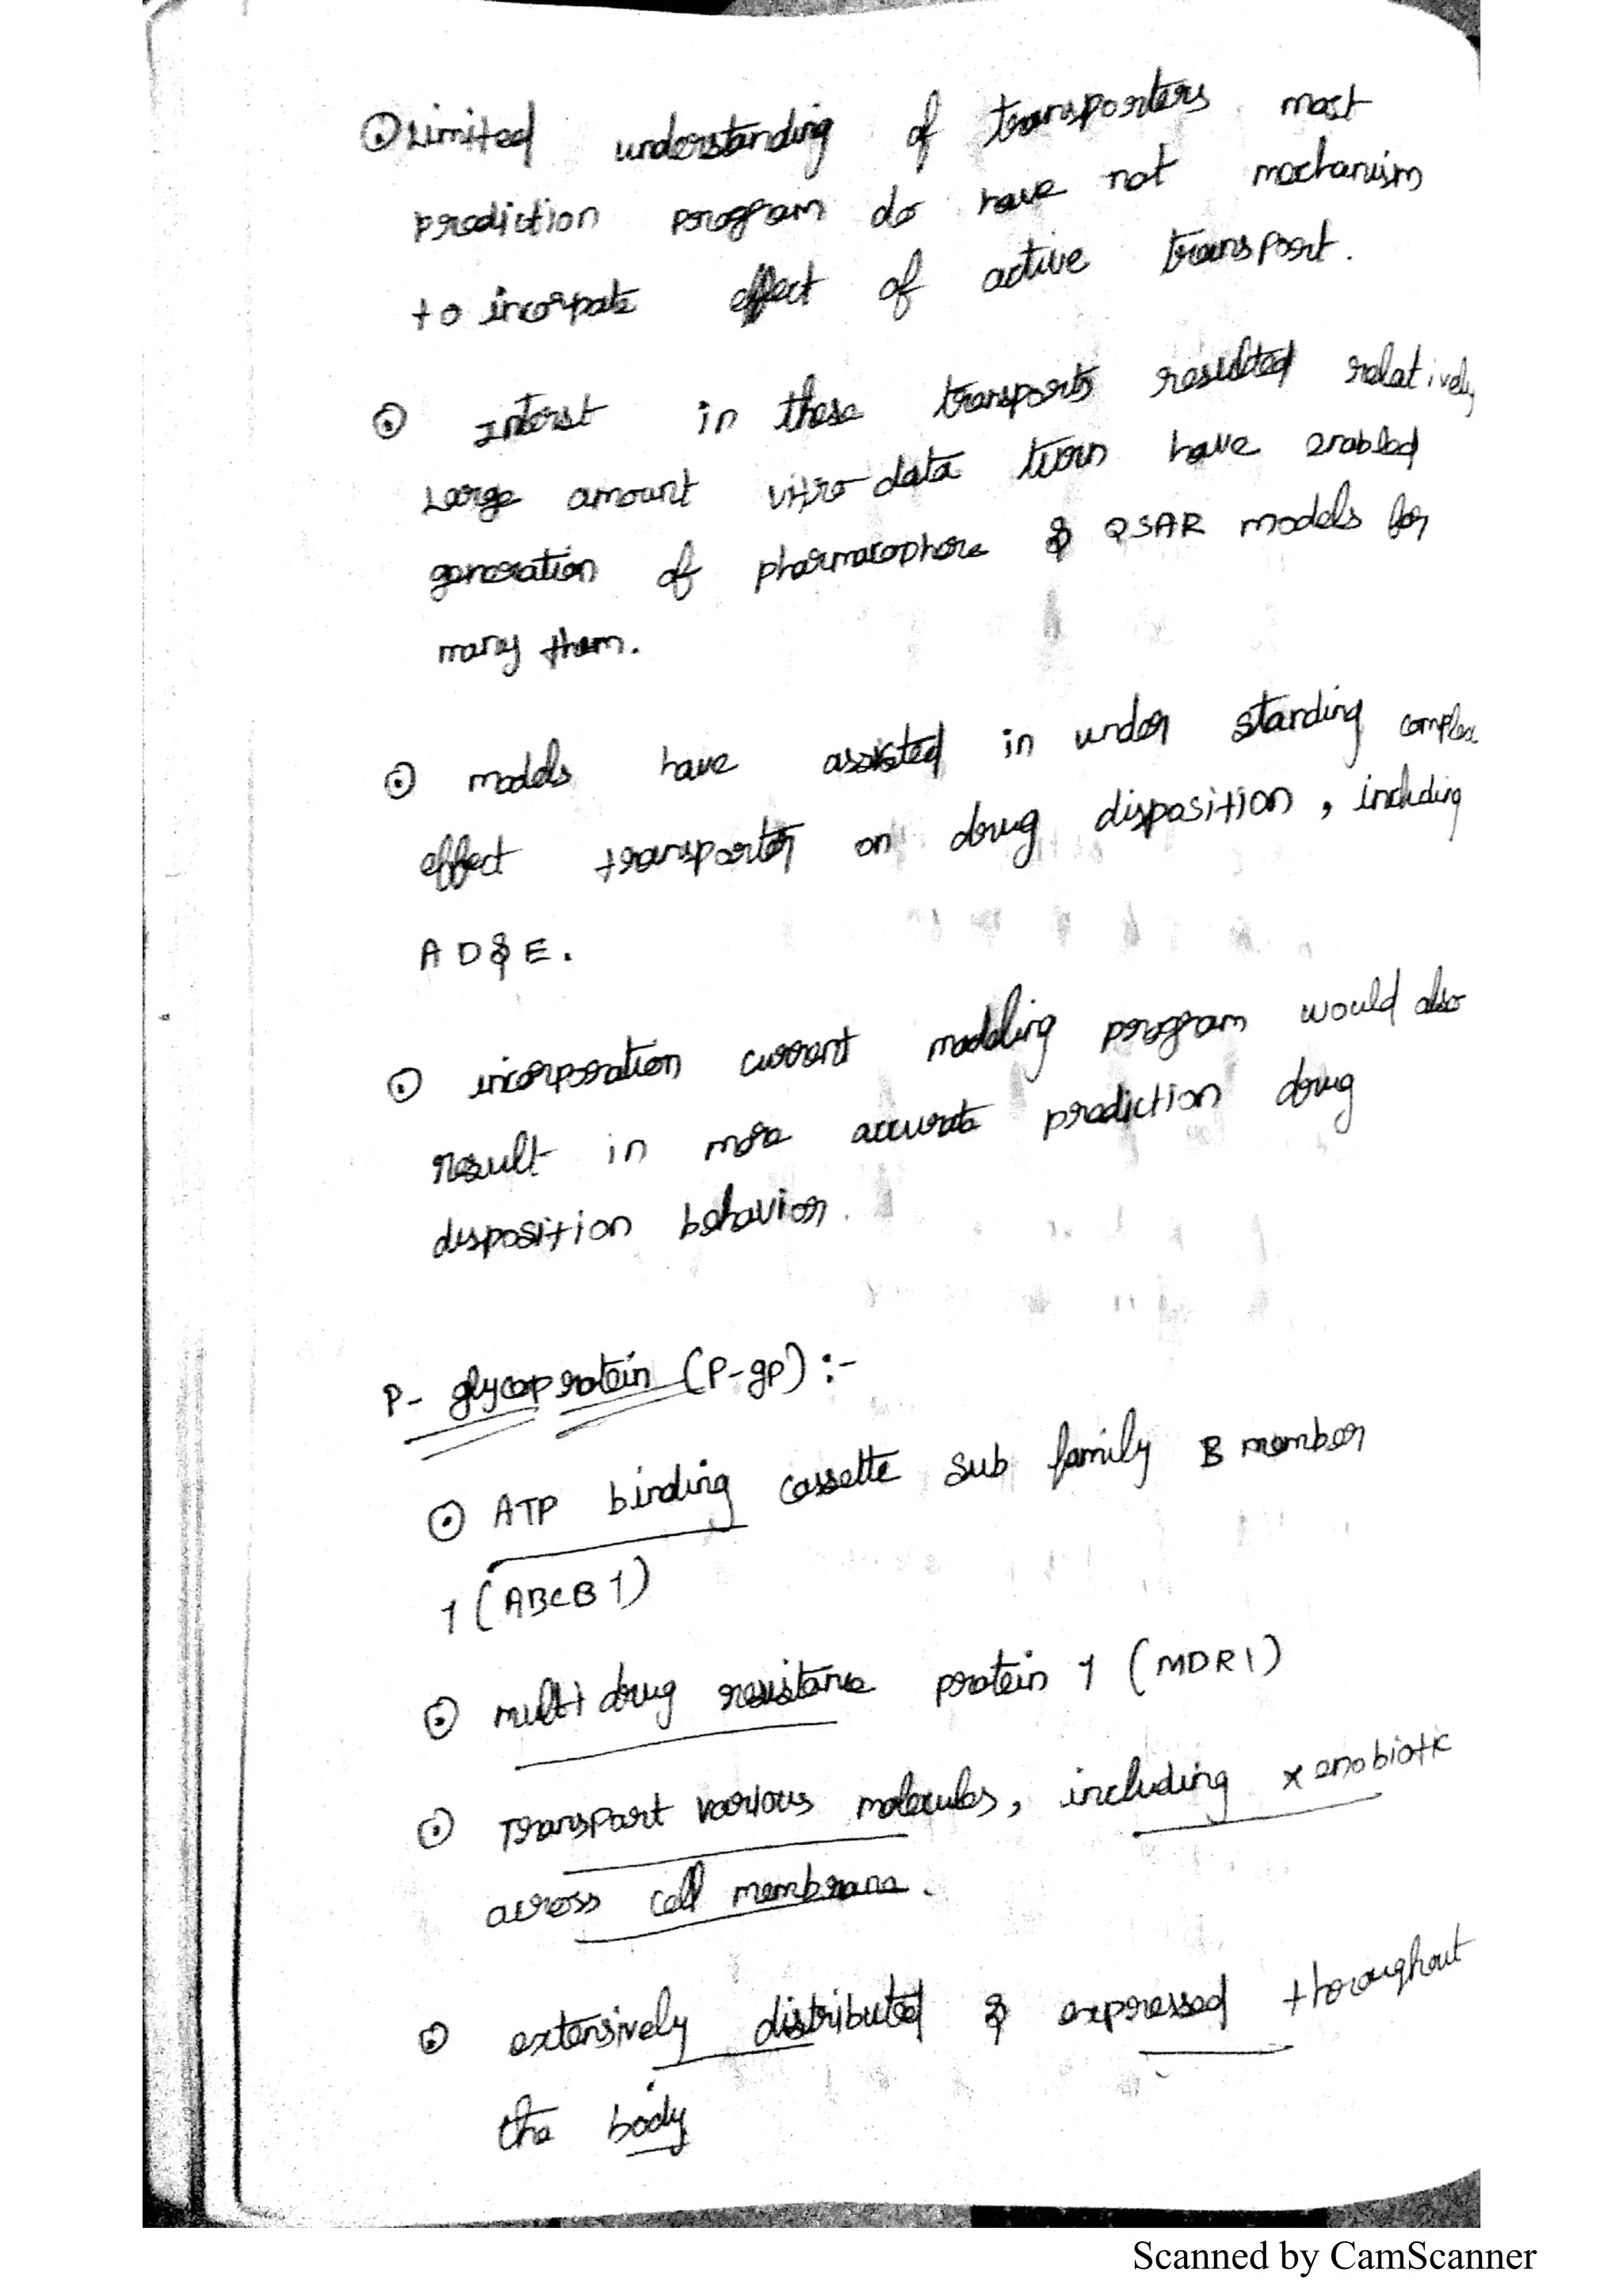 ⊙ Limited understanding of transporters most
prediction program do have not mechanism
to incorpate effect of active transport.
⊙ Interst in these transports resulted relatively
Large amount vitro data turn have enabled
generation of pharmacophore & QSAR models for
many them.
⊙ models have assisted in under standing complex
effect transporter on drug disposition, including
A D & E.
⊙ incorporation current modeling program would also
result in more accurate prediction drug
disposition behavior.
P- glycoprotein (P-gp) :-
⊙ ATP binding cassette sub family B member
1 (ABCB 1)
⊙ multi drug resistance protein 1 (MDR1)
⊙ Transport various molecules, including xenobiotic
across cell membrane.
⊙ extensively distributed & expressed thoroughout
the body
Scanned by CamScanner